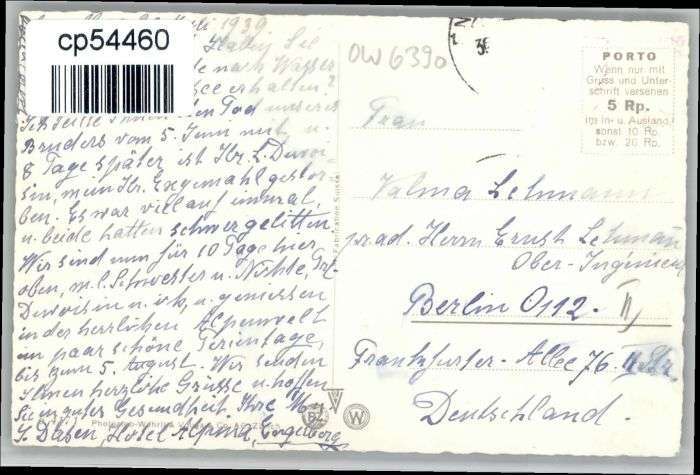 cp54460
Juli 1939
Haben Sie
nach Wasser
erhalten?
Ich teilte Ihnen den Tod unseres
Bruders vom 5. Juni mit, u.
8 Tage später ist Hr. L.
mein Hr. Exgemahl gestor-
ben. Es war viel auf einmal,
u. beide hatten schwer gelitten.
Wir sind nun für 10 Tage hier
oben, m. l. Schwester u. Nichte, Frl.
u. ich, u. geniessen
in der herrlichen Alpenwelt
ein paar schöne Ferientage,
bis zum 5. August. Wir senden
Ihnen herzliche Grüsse u. hoffen
Sie in guter Gesundheit. Ihre
Hotel Alpina, Engelberg
OW 6390
PORTO
Wenn nur mit
Gruss und Unter-
schrift versehen
5 Rp.
im In- u. Ausland
sonst 10 Rp.
bzw. 20 Rp.
Frau
Valma Lehmann
pr. ad. Herrn Ernst Lehmann
Ober-Ingenieur
Berlin O 112.
Frankfurter-Allee 76
Deutschland.
W